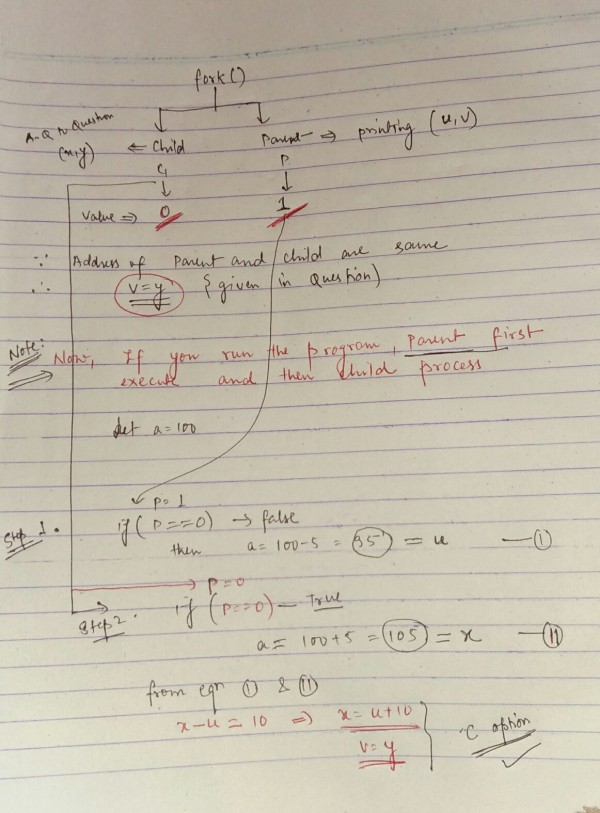 fork()
A-Q to Question
(x,y) ⇐ Child Parent ⇒ printing (u,v)
C₁ P
Value ⇒ 0 1
∵ Address of Parent and child are same
∴ v=y {given in Question)
Note:
Now, If you run the program, parent first
execute and then child process
Let a=100
P=1
Step 1. if(P==0) → false
then a=100-5 = 95 = u —(I)
P=0
Step 2. if (P==0) — True
a= 100+5 = 105 = x —(II)
from eqn (I) & (II)
x-u=10 ⇒ x=u+10
v=y
'C option